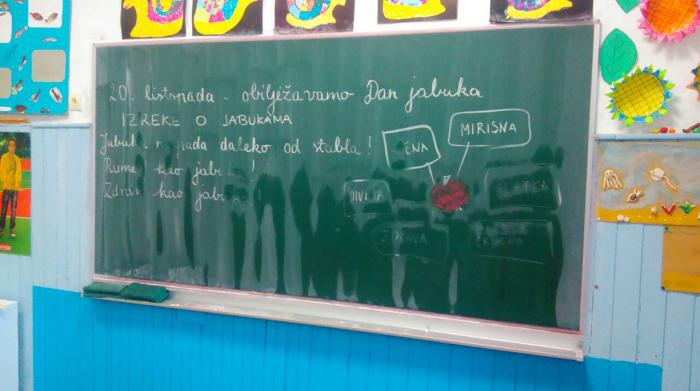 20. listopada - obilježavamo Dan jabuka
IZREKE O JABUKAMA
Jabuk. n pada daleko od stabla!
Rume kao jab !
Zdrav kao jab
ENA
MIRISNA
DIVLJA
SLATKA
ZDRAVA